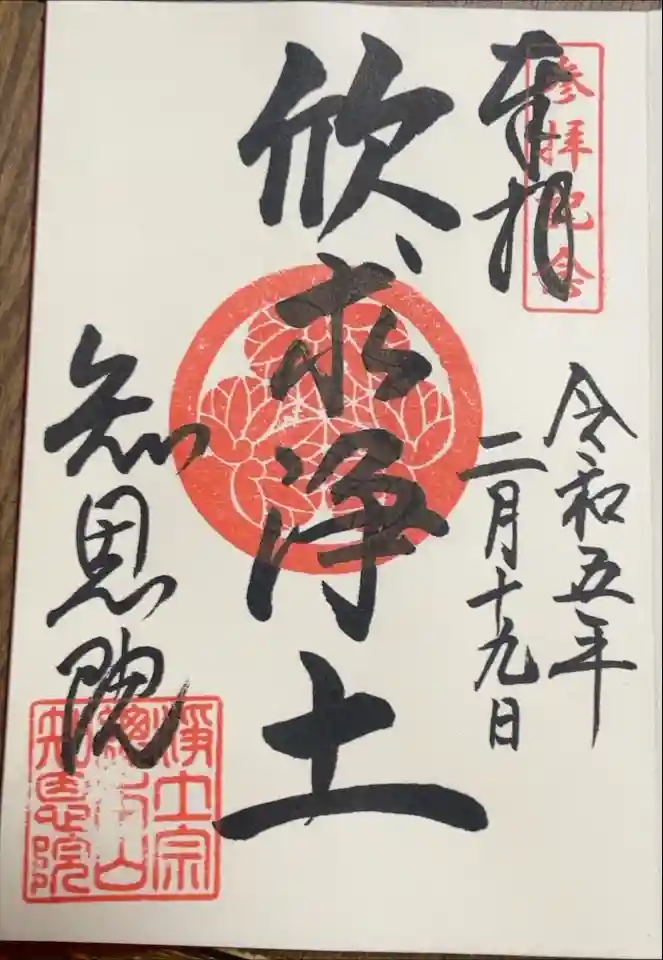 参拝記念
奉拝
令和五年
二月十九日
欣求浄土
知恩院
浄土宗
總本山
知恩院